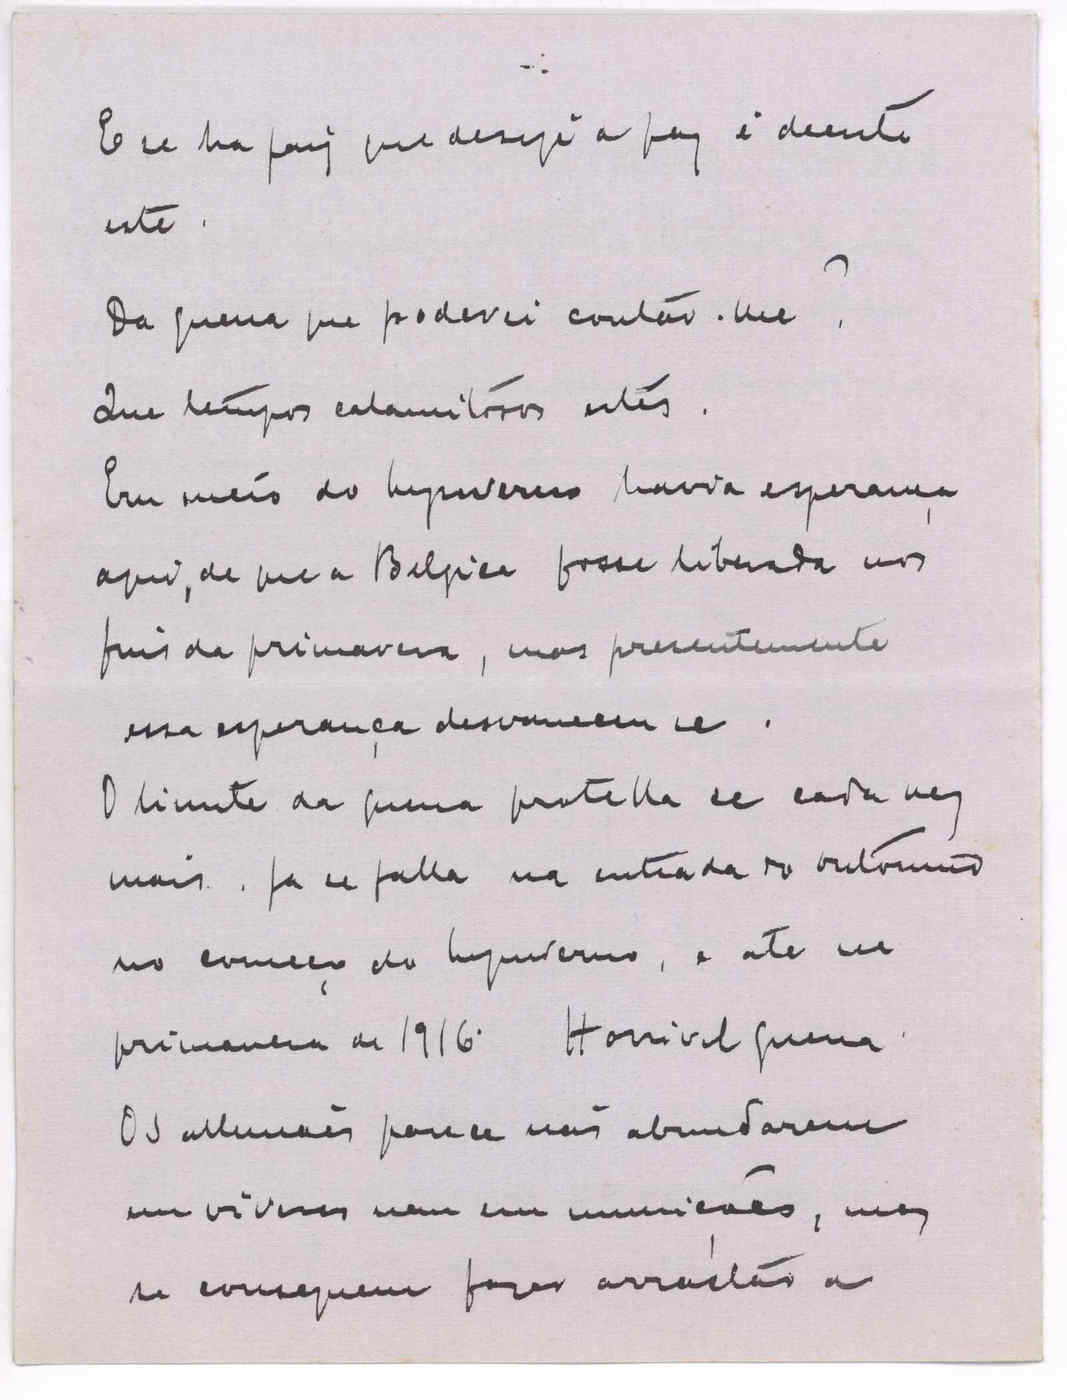 E se ha paiz que deseje a paz é decerto
este.
Da guerra que poderei contar-lhe?
Que tempos calamitosos estes.
Em meio do hynverno havia esperança
aqui, de que a Belgica fosse liberada nos
fins da primavera, mas presentemente
essa esperança desvanecem se.
O limite da guerra protella se cada vez
mais. Ja se falla na entrada do outomno
no começo do hynverno, e ate na
primavera de 1916. Horrivel guerra.
Os allemaẽs parece naõ abundarem
em viveres nem em municções, mas
se conseguem fazer arrastar a